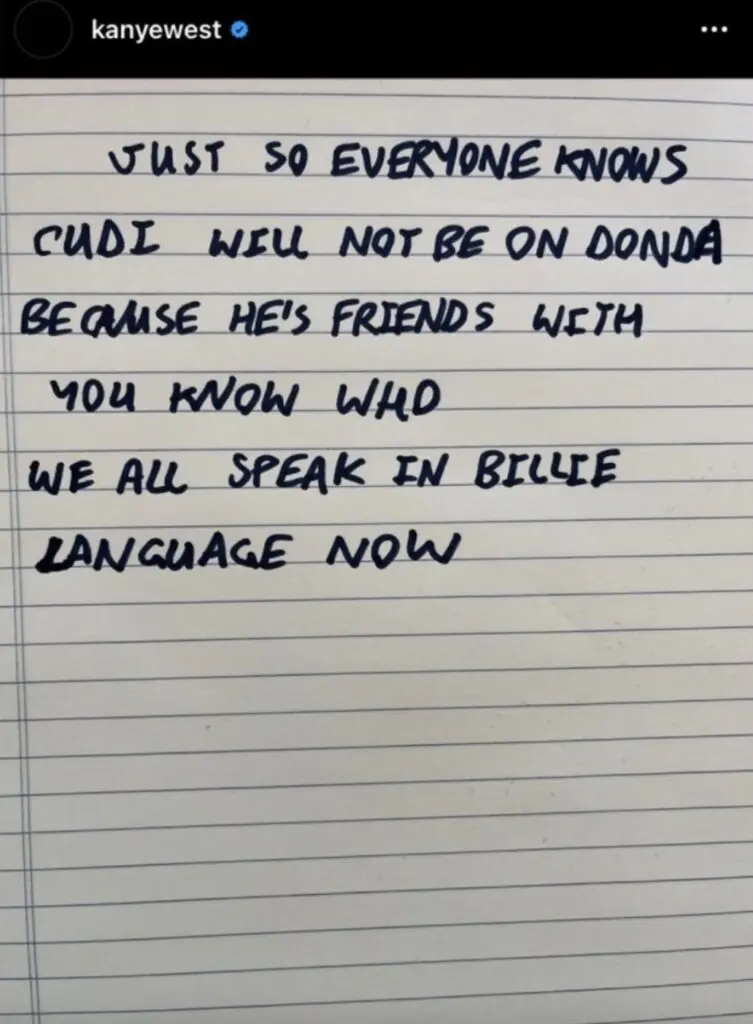 kanyewest
JUST SO EVERYONE KNOWS
CUDI WILL NOT BE ON DONDA
BECAUSE HE'S FRIENDS WITH
YOU KNOW WHO
WE ALL SPEAK IN BILLIE
LANGUAGE NOW